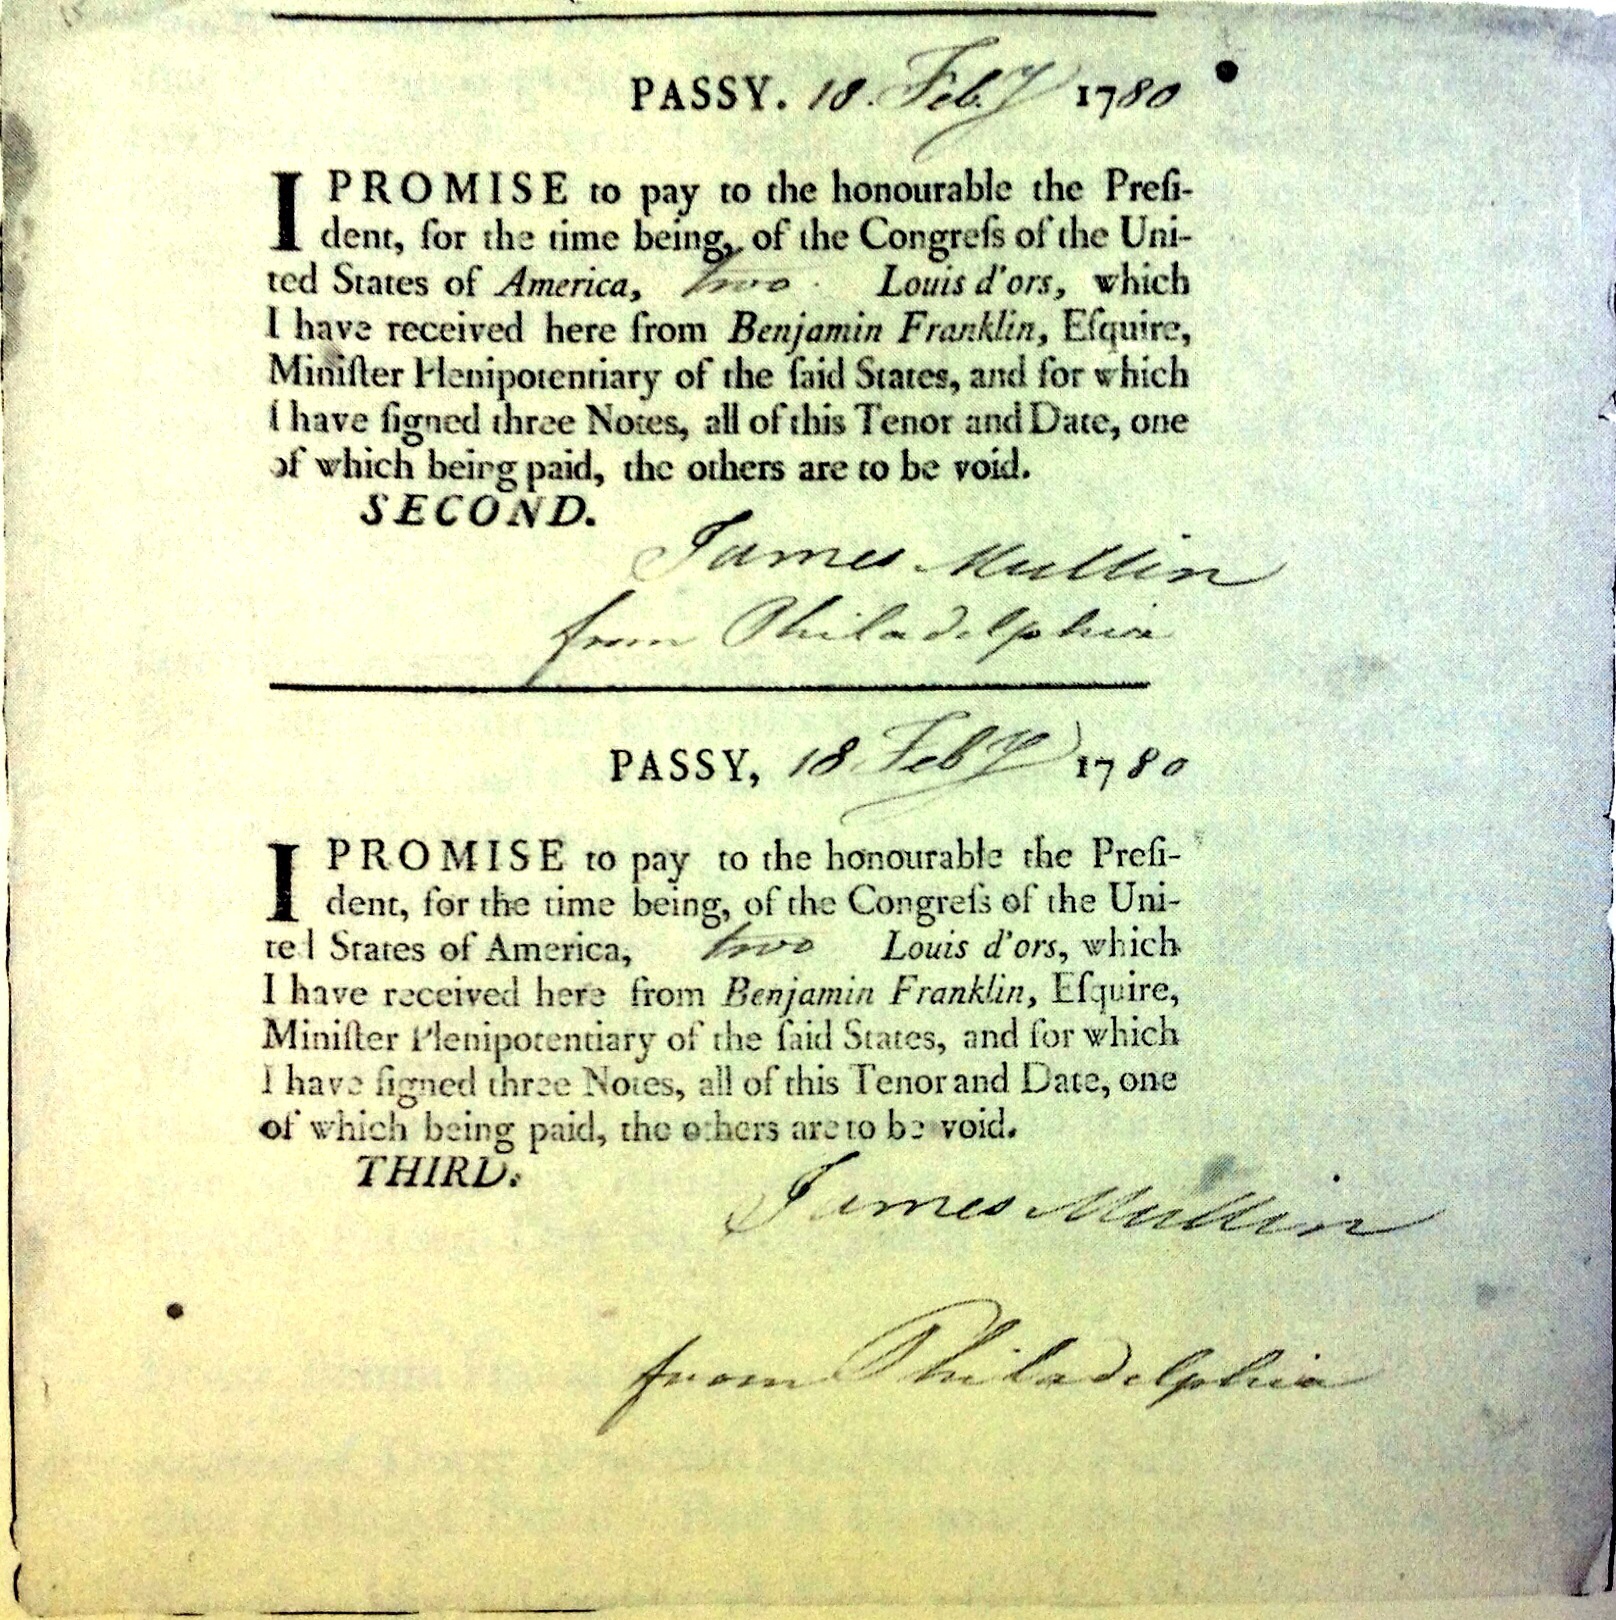 PASSY. 18. Feb.y 1780
I PROMISE to pay to the honourable the Preſi-
dent, for the time being, of the Congreſs of the Uni-
ted States of America, two Louis d'ors, which
I have received here from Benjamin Franklin, Eſquire,
Miniſter Plenipotentiary of the ſaid States, and for which
I have ſigned three Notes, all of this Tenor and Date, one
of which being paid, the others are to be void.
SECOND.
James Mullin
from Philadelphia
PASSY, 18 Feby 1780
I PROMISE to pay to the honourable the Preſi-
dent, for the time being, of the Congreſs of the Uni-
ted States of America, two Louis d'ors, which
I have received here from Benjamin Franklin, Eſquire,
Miniſter Plenipotentiary of the ſaid States, and for which
I have ſigned three Notes, all of this Tenor and Date, one
of which being paid, the others are to be void.
THIRD.
James Mullin
from Philadelphia